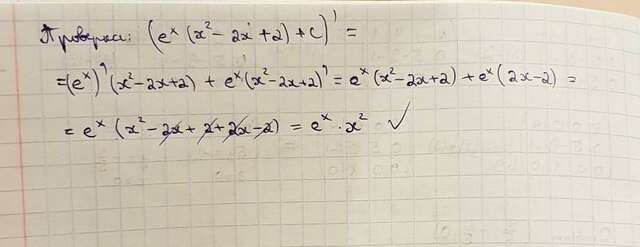 Проверка: (eˣ (x² - 2x + 2) + C)' =
= (eˣ)' (x² - 2x + 2) + eˣ (x² - 2x + 2)' = eˣ (x² - 2x + 2) + eˣ (2x - 2) =
= eˣ (x² - 2x + 2 + 2x - 2) = eˣ · x² ✓